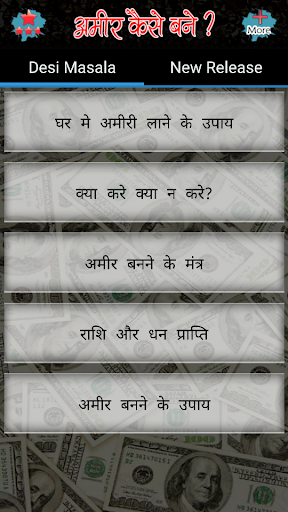 अमीर कैसे बने ?
More
Desi Masala
New Release
घर मे अमीरी लाने के उपाय
क्या करे क्या न करे?
अमीर बनने के मंत्र
राशि और धन प्राप्ति
अमीर बनने के उपाय